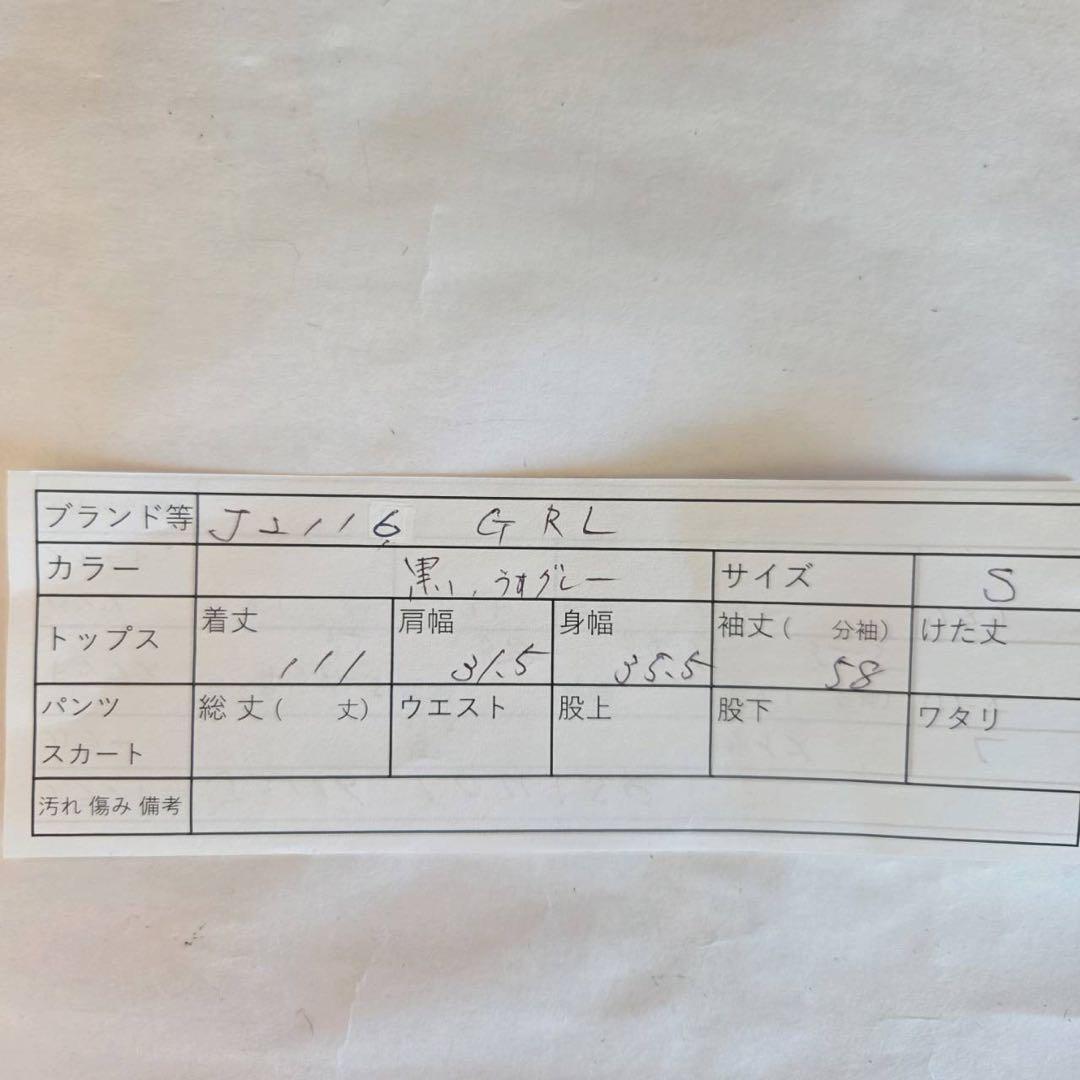 ブランド等 J2116 GRL
カラー 黒、うすグレー サイズ S
トップス 着丈 111 肩幅 31.5 身幅 35.5 袖丈( 分袖) 58 けた丈
パンツ スカート 総丈( 丈) ウエスト 股上 股下 ワタリ
汚れ 傷み 備考